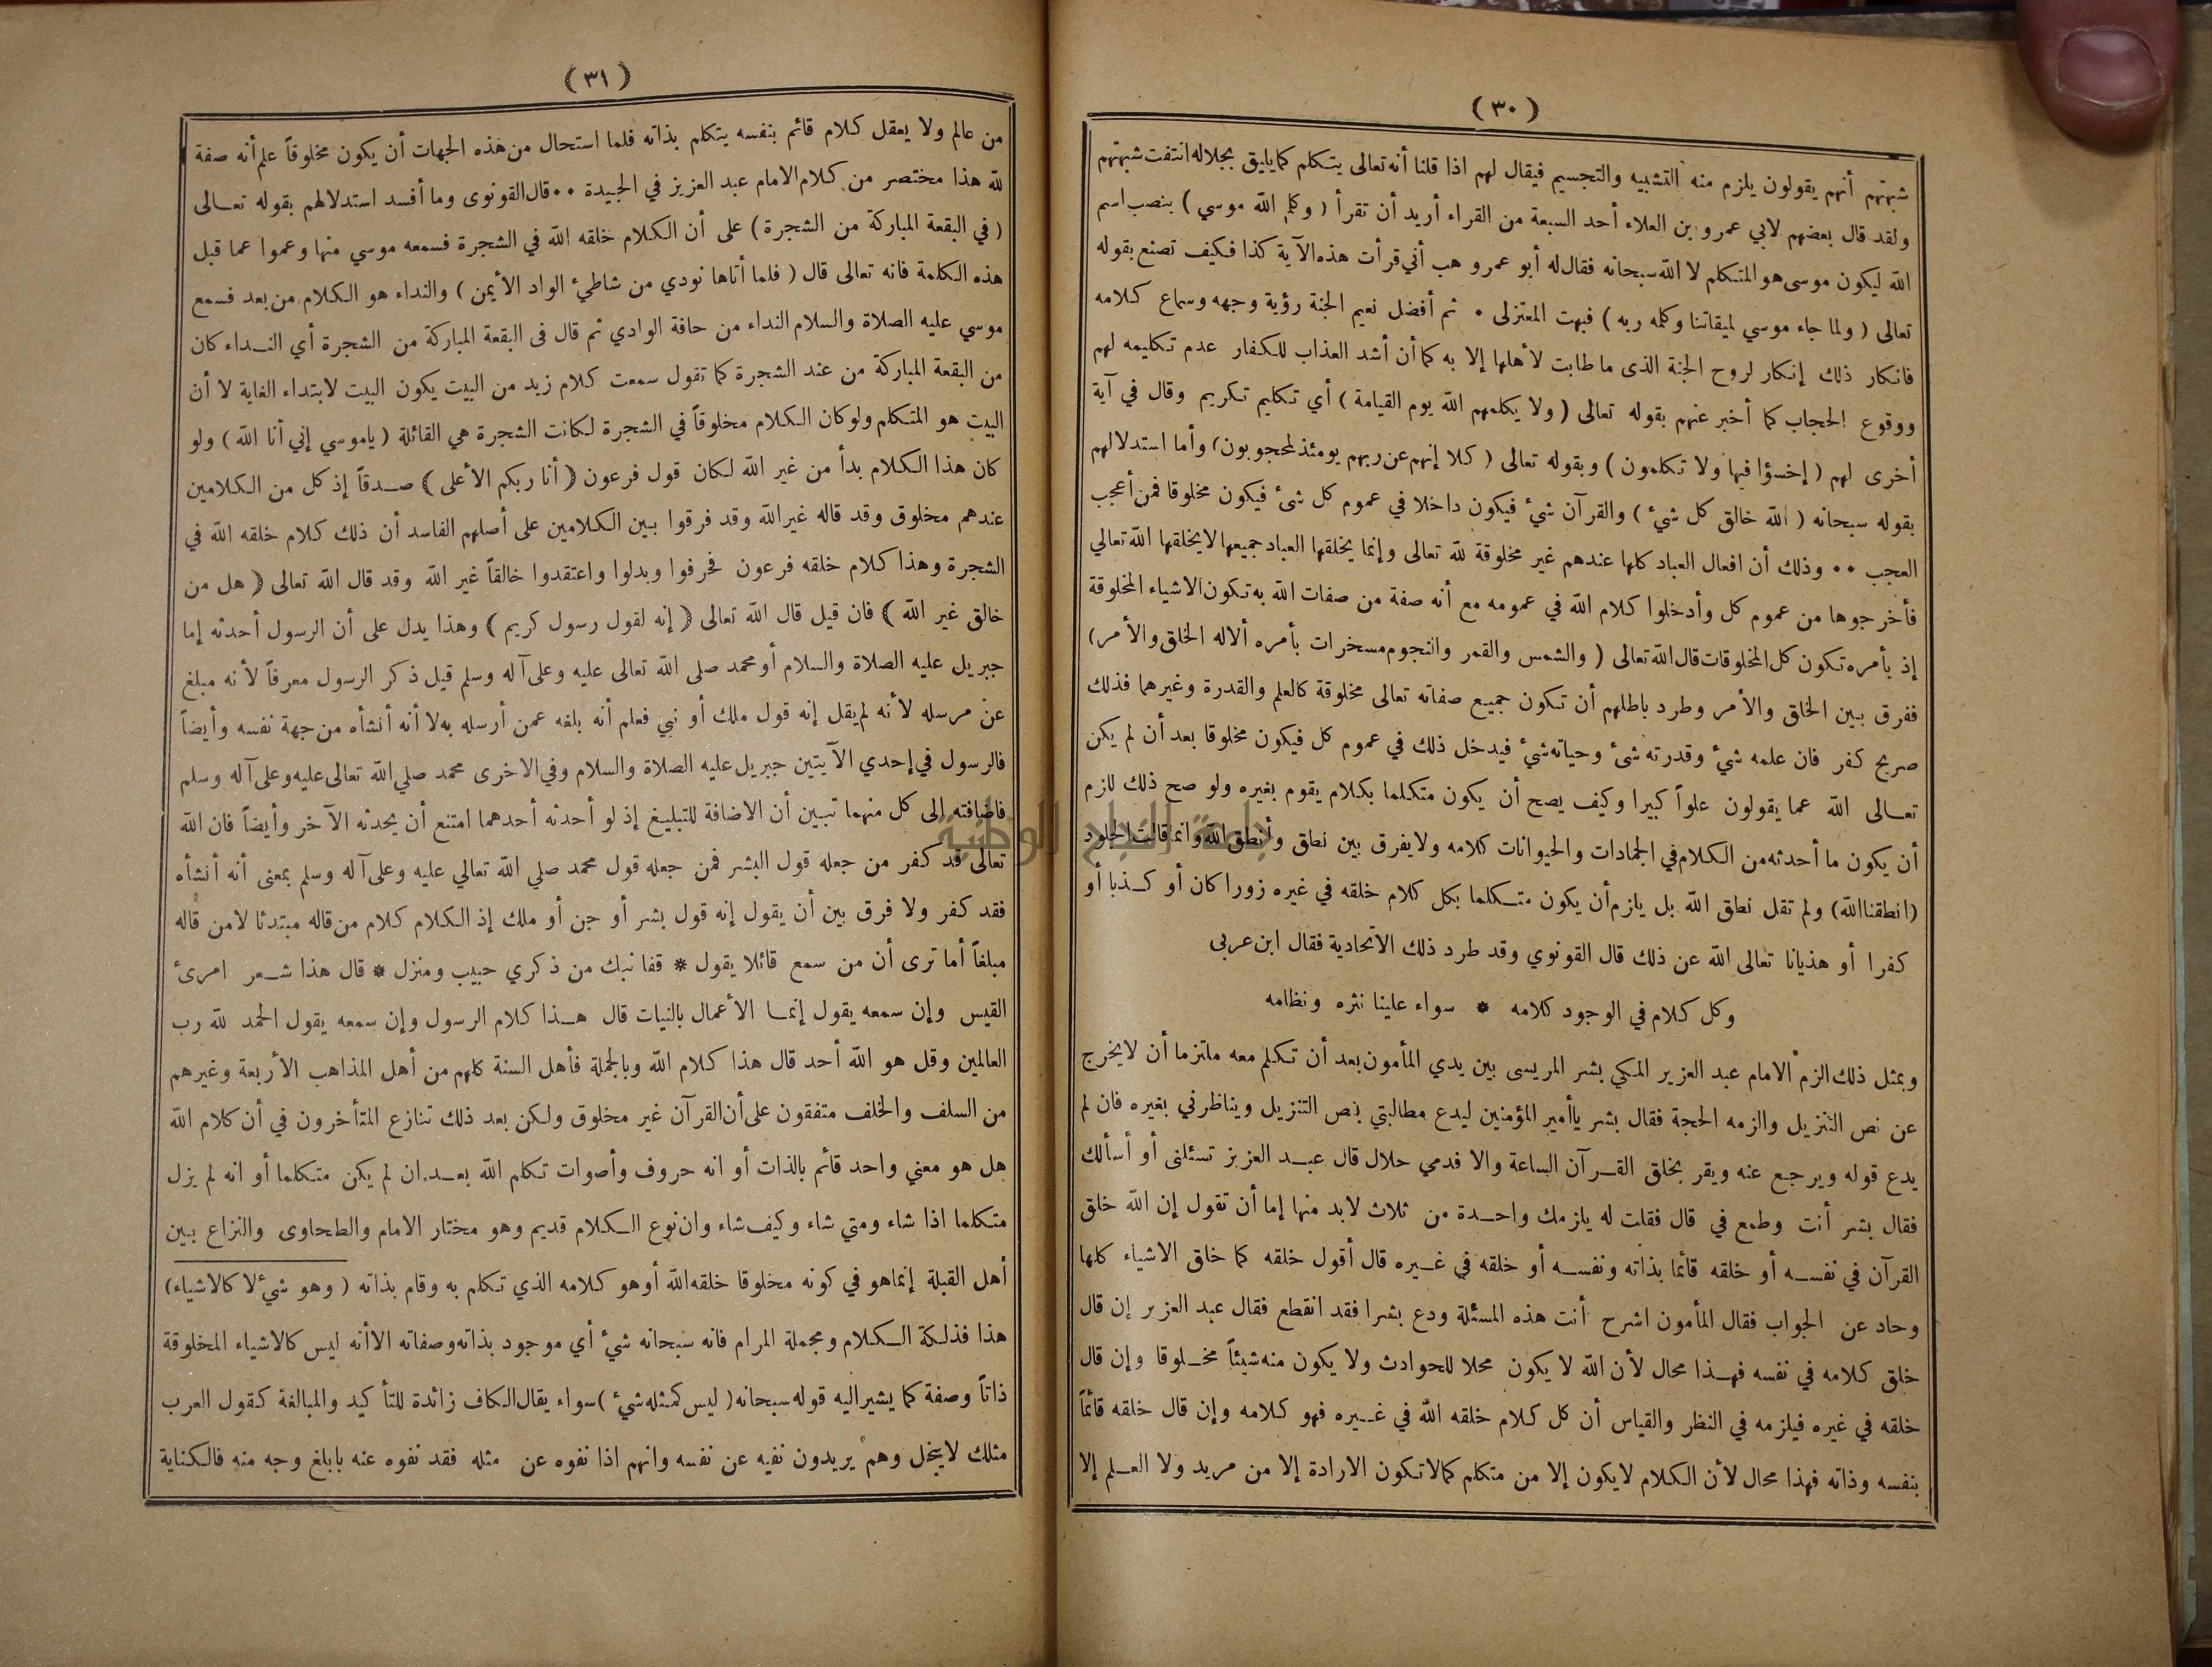 (٣٠)
شبهتهم أنهم يقولون يلزم منه التشبيه والتجسيم فيقال لهم اذا قلنا أنه تعالى يتكلم كما يليق بجلاله انتفت شبهتهم
ولقد قال بعضهم لابي عمرو بن العلاء أحد السبعة من القراء أريد أن تقرأ ( وكلم الله موسي ) بنصب اسم
الله ليكون موسى هو المتكلم لا الله سبحانه فقال له أبو عمرو هب أني قرأت هذه الآية كذا فكيف تصنع بقوله
تعالى ( ولما جاء موسي لميقاتنا وكلمه ربه ) فبهت المعتزلى • ثم أفضل نعيم الجنة رؤية وجهه وسماع كلامه
فانكار ذلك إنكار لروح الجنة الذى ما طابت لأهلها إلا به كما أن أشد العذاب للكفار عدم تكليمه لهم
ووقوع الحجاب كما أخبر عنهم بقوله تعالى ( ولا يكلمهم الله يوم القيامة ) أي تكليم تكريم وقال في آية
أخرى لهم ( إخسؤا فيها ولا تكلمون ) وبقوله تعالى ( كلا إنهم عن ربهم يومئذ لمحجوبون ) وأما استدلالهم
بقوله سبحانه ( الله خالق كل شيء ) والقرآن شيء فيكون داخلا في عموم كل شئ فيكون مخلوقا فمن أعجب
العجب •• وذلك أن افعال العباد كلها عندهم غير مخلوقة لله تعالى وإنما يخلقها العباد جميعها لا يخلقها الله تعالي
فأخرجوها من عموم كل وأدخلوا كلام الله في عمومه مع أنه صفة من صفات الله به تكون الاشياء المخلوقة
إذ بأمره تكون كل المخلوقات قال الله تعالى ( والشمس والقمر والنجوم مسخرات بأمره ألاله الخلق والأمر )
ففرق بين الخلق والأمر وطرد باطلهم أن تكون جميع صفاته تعالى مخلوقة كالعلم والقدرة وغيرهما فذلك
صريح كفر فان علمه شيء وقدرته شئ وحياته شيء فيدخل ذلك في عموم كل فيكون مخلوقا بعد أن لم يكن
تعالى الله عما يقولون علواً كبيرا وكيف يصح أن يكون متكلما بكلام يقوم بغيره ولو صح ذلك للزم
أن يكون ما أحدثه من الكلام في الجمادات والحيوانات كلامه ولا يفرق بين نطق وأنطق الله وانما قالت الجلود
(انطقنا الله) ولم تقل نطق الله بل يلزم أن يكون متكلما بكل كلام خلقه في غيره زورا كان أو كذبا أو
كفرا أو هذيانا تعالى الله عن ذلك قال القونوي وقد طرد ذلك الاتحادية فقال ابن عربى
وكل كلام في الوجود كلامه * سواء علينا نثره ونظامه
وبمثل ذلك الزم الامام عبد العزيز المكي بشر المريسى بين يدي المأمون بعد أن تكلم معه ملتزما أن لا يخرج
عن نص التنزيل والزمه الحجة فقال بشر يا أمير المؤمنين ليدع مطالبتي بنص التنزيل ويناظرني بغيره فان لم
يدع قوله ويرجع عنه ويقر بخلق القرآن الساعة والا فدمي حلال قال عبد العزيز تسئلنى أو أسألك
فقال بشر أنت وطمع في قال فقلت له يلزمك واحدة من ثلاث لابد منها إما أن تقول إن الله خلق
القرآن في نفسه أو خلقه قائما بذاته ونفسه أو خلقه في غيره قال أقول خلقه كما خلق الاشياء كلها
وحاد عن الجواب فقال المأمون اشرح أنت هذه المسئلة ودع بشرا فقد انقطع فقال عبد العزيز إن قال
خلق كلامه في نفسه فهذا محال لأن الله لا يكون محلا للحوادث ولا يكون منه شيئاً مخلوقا وإن قال
خلقه في غيره فيلزمه في النظر والقياس أن كل كلام خلقه الله في غيره فهو كلامه وإن قال خلقه قائماً
بنفسه وذاته فهذا محال لأن الكلام لا يكون إلا من متكلم كما لا تكون الارادة إلا من مريد ولا العلم إلا
(٣١)
من عالم ولا يعقل كلام قائم بنفسه يتكلم بذاته فلما استحال من هذه الجهات أن يكون مخلوقاً علم أنه صفة
لله هذا مختصر من كلام الامام عبد العزيز في الجيدة •• قال القونوى وما أفسد استدلالهم بقوله تعالى
( في البقعة المباركة من الشجرة ) على أن الكلام خلقه الله في الشجرة فسمعه موسي منها وعموا عما قبل
هذه الكلمة فانه تعالى قال ( فلما أتاها نودي من شاطيء الواد الأيمن ) والنداء هو الكلام من بعد فسمع
موسي عليه الصلاة والسلام النداء من حافة الوادي ثم قال فى البقعة المباركة من الشجرة أي النداء كان
من البقعة المباركة من عند الشجرة كما تقول سمعت كلام زيد من البيت يكون البيت لابتداء الغاية لا أن
البيت هو المتكلم ولو كان الكلام مخلوقاً في الشجرة لكانت الشجرة هي القائلة ( ياموسي إني أنا الله ) ولو
كان هذا الكلام بدأ من غير الله لكان قول فرعون ( أنا ربكم الأعلى ) صدقاً إذ كل من الكلامين
عندهم مخلوق وقد قاله غير الله وقد فرقوا بين الكلامين على أصلهم الفاسد أن ذلك كلام خلقه الله في
الشجرة وهذا كلام خلقه فرعون فحرفوا وبدلوا واعتقدوا خالقاً غير الله وقد قال الله تعالى ( هل من
خالق غير الله ) فان قيل قال الله تعالى ( إنه لقول رسول كريم ) وهذا يدل على أن الرسول أحدثه إما
جبريل عليه الصلاة والسلام أو محمد صلى الله تعالى عليه وعلى آله وسلم قيل ذكر الرسول معرفاً لأنه مبلغ
عن مرسله لأنه لم يقل إنه قول ملك أو نبي فعلم أنه بلغه عمن أرسله به لا أنه أنشأه من جهة نفسه وأيضاً
فالرسول في إحدي الآيتين جبريل عليه الصلاة والسلام وفي الاخرى محمد صلي الله تعالى عليه وعلى آله وسلم
فاضافته إلى كل منهما تبين أن الاضافة للتبليغ إذ لو أحدثه أحدهما امتنع أن يحدثه الآخر وأيضاً فان الله
تعالى قد كفر من جعله قول البشر فمن جعله قول محمد صلي الله تعالي عليه وعلى آله وسلم بمعنى أنه أنشأه
فقد كفر ولا فرق بين أن يقول إنه قول بشر أو جن أو ملك إذ الكلام كلام من قاله مبتدئا لا من قاله
مبلغاً أما ترى أن من سمع قائلا يقول * قفا نبك من ذكري حبيب ومنزل * قال هذا شعر امرئ
القيس وإن سمعه يقول إنما الأعمال بالنيات قال هذا كلام الرسول وإن سمعه يقول الحمد لله رب
العالمين وقل هو الله أحد قال هذا كلام الله وبالجملة فأهل السنة كلهم من أهل المذاهب الأربعة وغيرهم
من السلف والخلف متفقون على أن القرآن غير مخلوق ولكن بعد ذلك تنازع المتأخرون في أن كلام الله
هل هو معني واحد قائم بالذات أو انه حروف وأصوات تكلم الله بعد ان لم يكن متكلما أو انه لم يزل
متكلما اذا شاء ومتي شاء وكيف شاء وان نوع الكلام قديم وهو مختار الامام والطحاوى والنزاع بين
أهل القبلة إنما هو في كونه مخلوقا خلقه الله أو هو كلامه الذي تكلم به وقام بذاته ( وهو شيء لا كالاشياء )
هذا فذلكة الكلام ومجملة المرام فانه سبحانه شيء أي موجود بذاته وصفاته الا أنه ليس كالاشياء المخلوقة
ذاتاً وصفة كما يشير اليه قوله سبحانه ( ليس كمثله شيء ) سواء يقال الكاف زائدة للتأكيد والمبالغة كقول العرب
مثلك لا يبخل وهم يريدون نفيه عن نفسه وانهم اذا نفوه عن مثله فقد نفوه عنه بابلغ وجه منه فالكناية
جامعة النجاح الوطنية